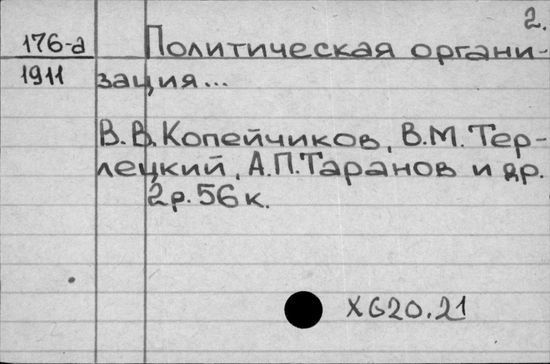 2.
176-а Политическая органи-
1911 зация...
В.В.Копейчиков, В.М.Тер-
лецкий, А.П.Таранов и др.
2р.56к.
Х620.21